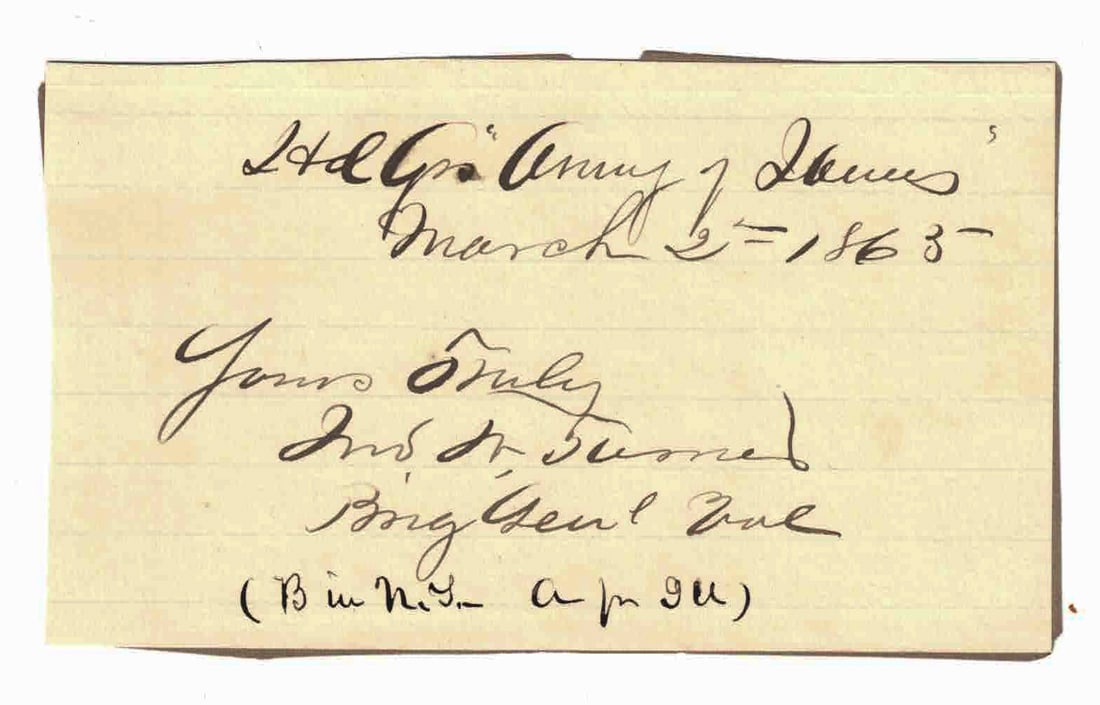 Hd Qrs "Army of James"
March 2nd 1865
Yours Truly
Jno. W. Turner
Brig Genl Vol
(B in N.Y. – A – fr Ill)